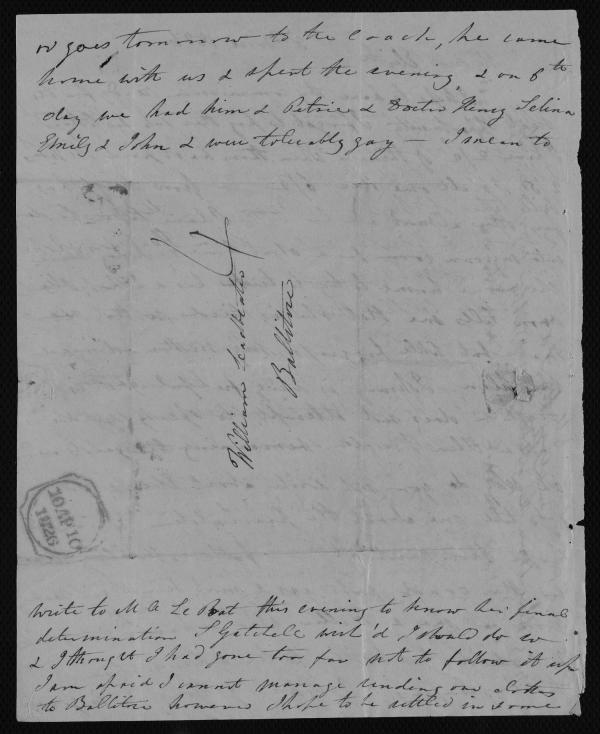 goes tomorrow to the Coach, he came
home with us & spent the evening, & on 6th
day we had him & Petrie & Doctor Henry Selina
Emily & John & were tolerably gay — I mean to
4
William Leadbeater
Ballitore
10 AP 10
1826
write to M A Le this evening to know her final
determination S wish'd I should do so
& I thought I had gone too far not to follow it up
I am afraid I cannot manage sending our clothes
to Ballitore however I hope to be settled in some